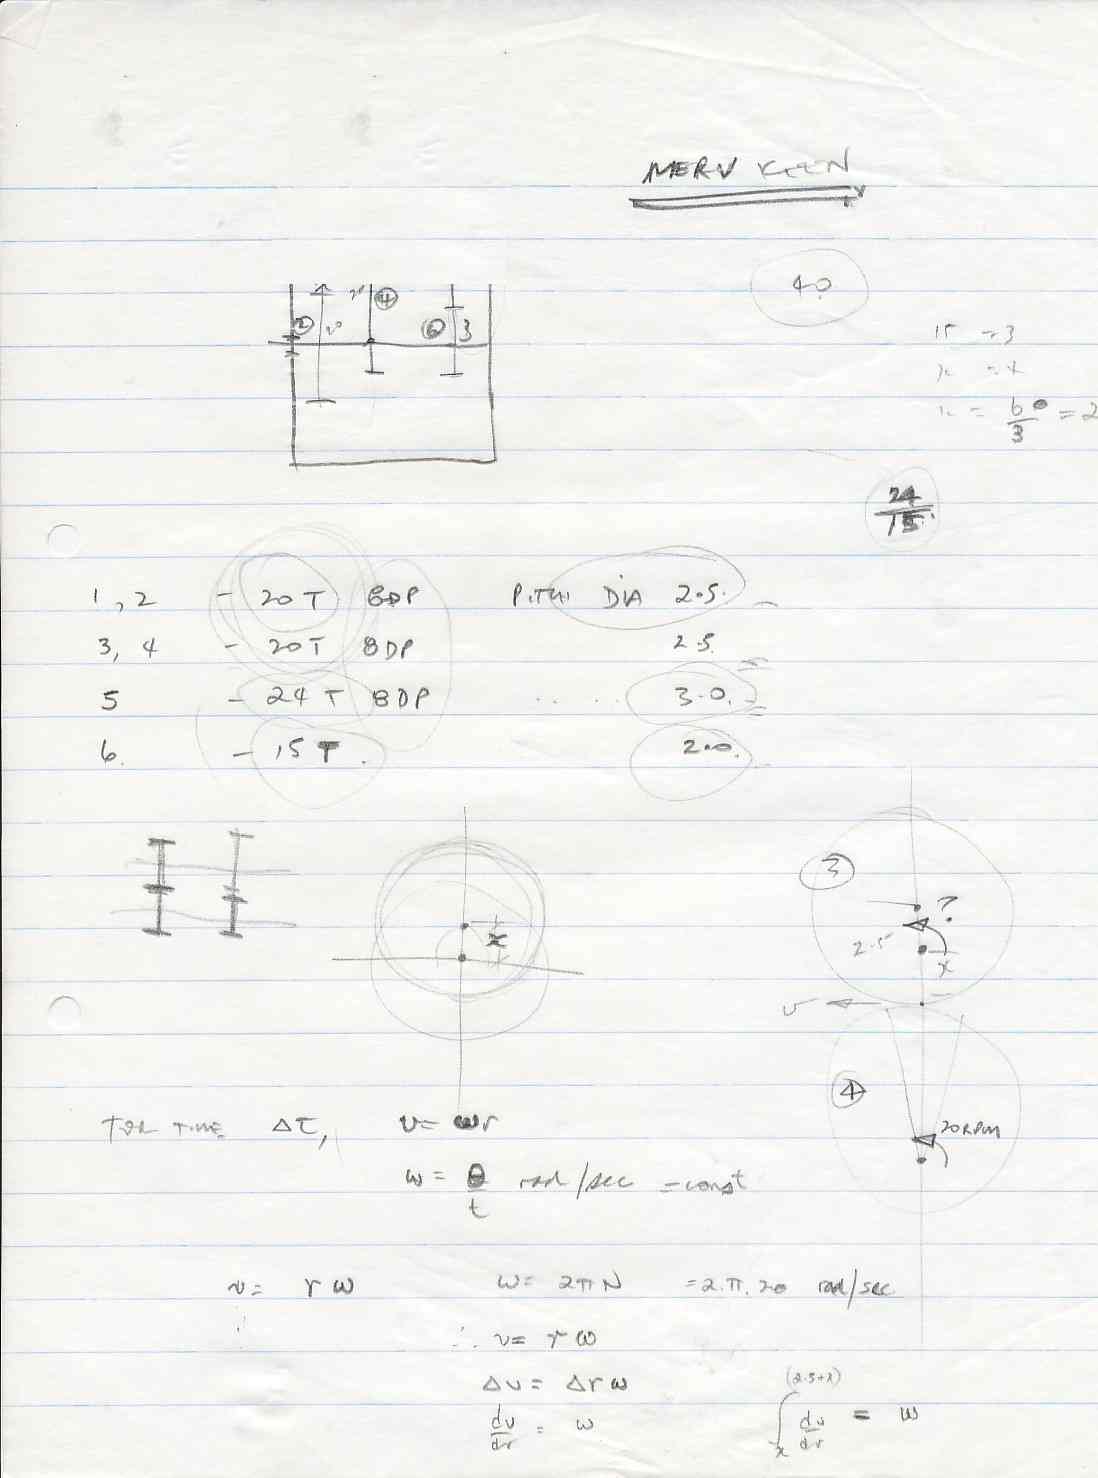 MERV KEEN
4.0
② ④ ⑥ 3
15 = 3
= 60/3 = 2
24/15
1, 2 - 20T 8DP PITCH DIA 2.5.
3, 4 - 20T 8DP 2.5.
5 - 24T 8DP .. .. 3.0.
6. - 15T. 2.0.
③
?
x
2.5
x
v
④
20 RPM
FOR TIME Δt, v = ωr
ω = θ/t rad/sec = const
v = rω ω = 2πN = 2.π.20 rad/sec
∴ v = rω
Δv = Δrω (2.5+x)
dv/dr = ω ∫ dv/dr = ω
x